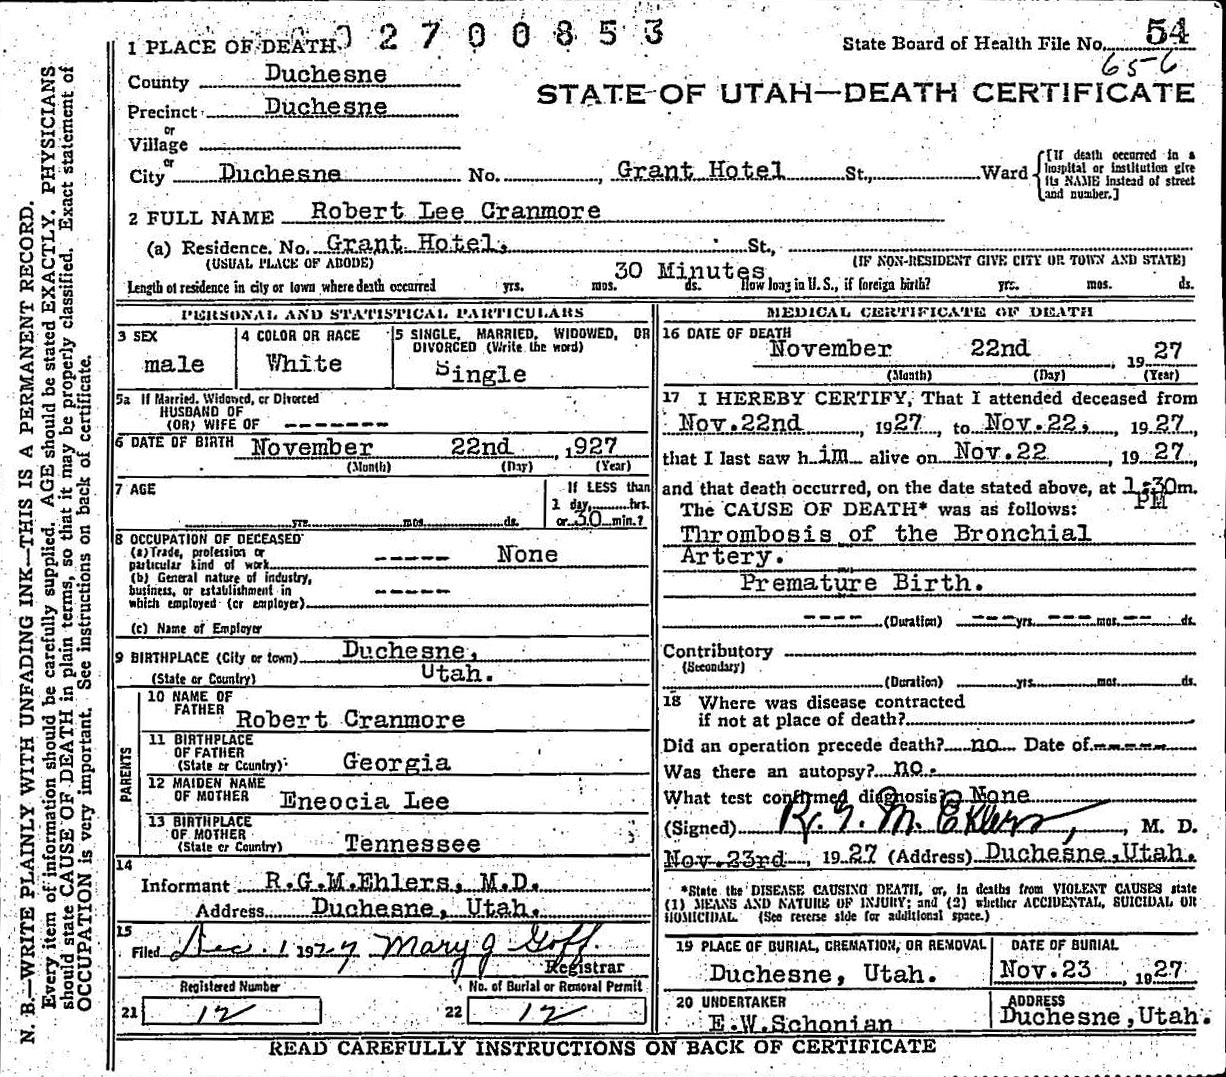 02700853
State Board of Health File No. 54
656
STATE OF UTAH—DEATH CERTIFICATE
1 PLACE OF DEATH
County Duchesne
Precinct Duchesne
or
Village
or
City Duchesne No. , Grant Hotel St., Ward
{[If death occurred in a hospital or institution give its NAME instead of street and number.]
2 FULL NAME Robert Lee Cranmore
(a) Residence. No. Grant Hotel, St.,
(USUAL PLACE OF ABODE) (IF NON-RESIDENT GIVE CITY OR TOWN AND STATE)
30 Minutes
Length of residence in city or town where death occurred yrs. mos. ds. How long in U. S., if foreign birth? yrs. mos. ds.
PERSONAL AND STATISTICAL PARTICULARS
3 SEX
male
4 COLOR OR RACE
White
5 SINGLE, MARRIED, WIDOWED, OR DIVORCED (Write the word)
Single
5a If Married, Widowed, or Divorced
HUSBAND OF
(OR) WIFE OF -------
6 DATE OF BIRTH November 22nd , 1927
(Month) (Day) (Year)
7 AGE
yrs. mos. ds.
If LESS than
1 day, hrs.
or 30 min.?
8 OCCUPATION OF DECEASED
(a) Trade, profession or particular kind of work ----- None
(b) General nature of industry, business, or establishment in which employed (or employer) -----
(c) Name of Employer
9 BIRTHPLACE (City or town) Duchesne,
(State or Country) Utah.
PARENTS
10 NAME OF FATHER Robert Cranmore
11 BIRTHPLACE OF FATHER
(State or Country) Georgia
12 MAIDEN NAME OF MOTHER Eneocia Lee
13 BIRTHPLACE OF MOTHER
(State or Country) Tennessee
14
Informant R.G.M.Ehlers, M.D.
Address Duchesne, Utah.
15
Filed Dec. 1 1927 Mary J Goff.
Registrar
Registered Number
21 12
No. of Burial or Removal Permit
22 12
MEDICAL CERTIFICATE OF DEATH
16 DATE OF DEATH
November 22nd , 1927
(Month) (Day) (Year)
17 I HEREBY CERTIFY, That I attended deceased from
Nov.22nd , 1927, to Nov.22, , 1927,
that I last saw h im alive on Nov.22 , 1927,
and that death occurred, on the date stated above, at 1:30m.
PM
The CAUSE OF DEATH* was as follows:
Thrombosis of the Bronchial
Artery.
Premature Birth.
---- (Duration) --- yrs. --- mos. -- ds.
Contributory
(Secondary)
(Duration) yrs. mos. ds.
18 Where was disease contracted
if not at place of death?
Did an operation precede death? no Date of -----
Was there an autopsy? no.
What test confirmed diagnosis? None
(Signed) R. G. M. Ehlers, , M. D.
Nov.23rd , 1927 (Address) Duchesne,Utah.
*State the DISEASE CAUSING DEATH, or, in deaths from VIOLENT CAUSES state
(1) MEANS AND NATURE OF INJURY; and (2) whether ACCIDENTAL, SUICIDAL OR
HOMICIDAL. (See reverse side for additional space.)
19 PLACE OF BURIAL, CREMATION, OR REMOVAL
Duchesne, Utah.
DATE OF BURIAL
Nov.23 1927
20 UNDERTAKER
E.W.Schonian
ADDRESS
Duchesne,Utah.
READ CAREFULLY INSTRUCTIONS ON BACK OF CERTIFICATE
N. B.—WRITE PLAINLY WITH UNFADING INK—THIS IS A PERMANENT RECORD.
Every item of information should be carefully supplied. AGE should be stated EXACTLY. PHYSICIANS
should state CAUSE OF DEATH in plain terms, so that it may be properly classified. Exact statement of
OCCUPATION is very important. See instructions on back of certificate.